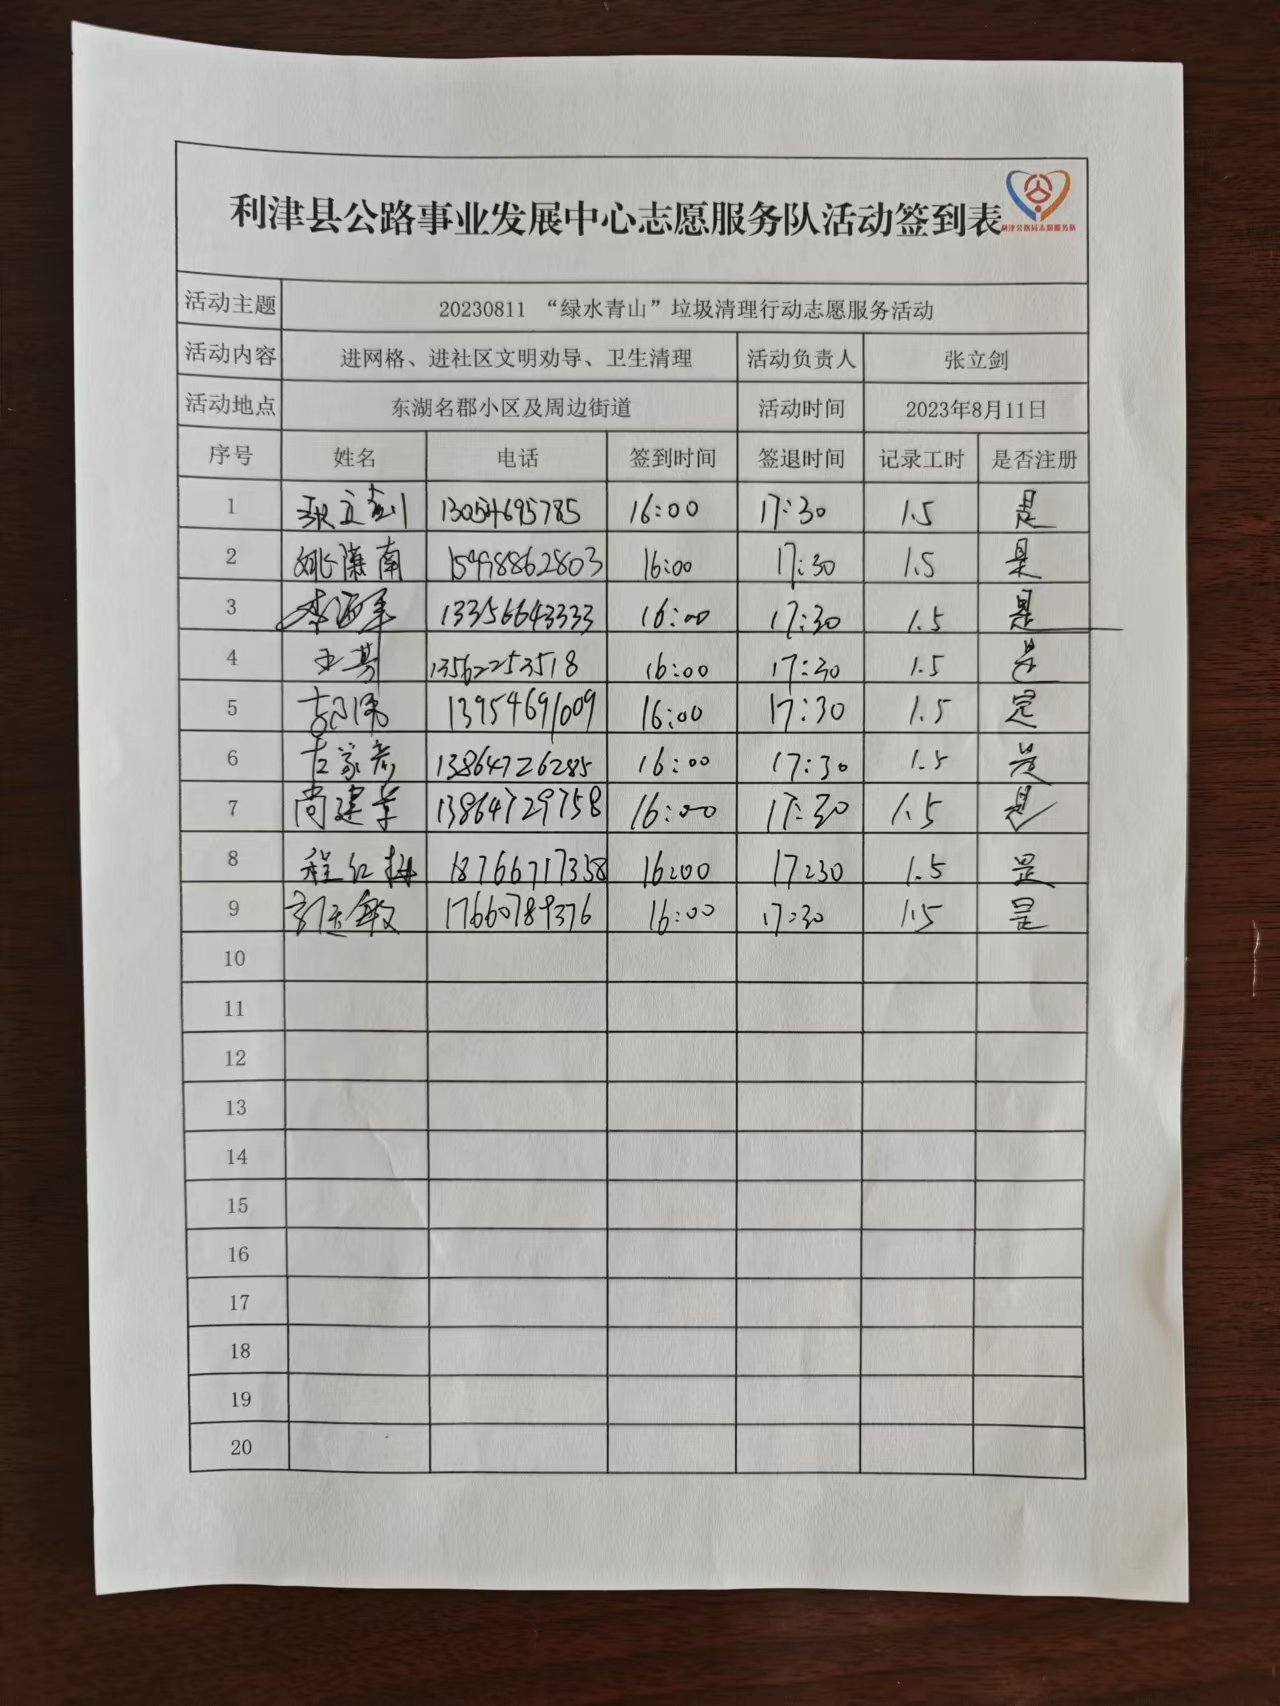 利津县公路事业发展中心志愿服务队活动签到表
利津公路局志愿服务队
活动主题 20230811 “绿水青山”垃圾清理行动志愿服务活动
活动内容 进网格、进社区文明劝导、卫生清理 活动负责人 张立剑
活动地点 东湖名郡小区及周边街道 活动时间 2023年8月11日
序号 姓名 电话 签到时间 签退时间 记录工时 是否注册
1 张立剑 13054695785 16:00 17:30 1.5 是
2 姚濂南 15998862803 16:00 17:30 1.5 是
3 李海军 13356643333 16:00 17:30 1.5 是
4 王其 13562253518 16:00 17:30 1.5 是
5 13954691009 16:00 17:30 1.5 是
6 13864726285 16:00 17:30 1.5 是
7 尚建 13864729758 16:00 17:30 1.5 是
8 程红梅 18766717358 16:00 17:30 1.5 是
9 敏 17660789376 16:00 17:30 1.5 是
10
11
12
13
14
15
16
17
18
19
20